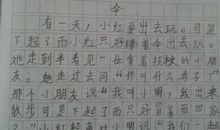 伞
有一天，小红要出去玩。可是
下起了雨小红只好撑着伞出去玩。
她走到半看见一位背着找枝的小朋
友。她走过去问"你叫什么名子？"
那个小朋友说"我叫小明，我出来
散步可是下起了雨只好冒着雨回家